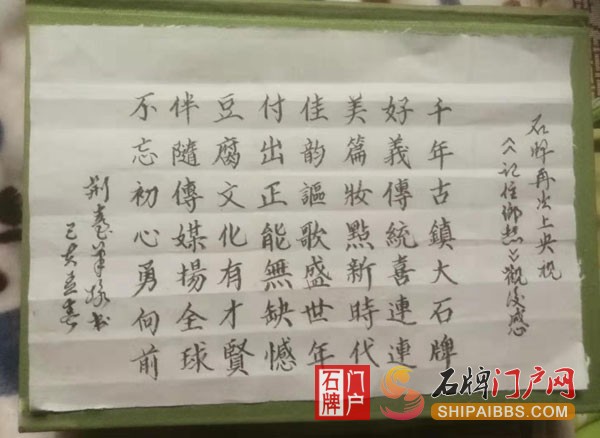 石牌再次上央視
《記住鄉愁》觀後感
千年古鎮大石牌
好義傳統喜連連
美篇妝點新時代
佳韵謳歌盛世年
付出正能無缺憾
豆腐文化有才賢
伴隨傳媒揚全球
不忘初心勇向前
荆臺筆书
己亥春
门户
石牌
石牌门户网
SHIPAIBBS.COM